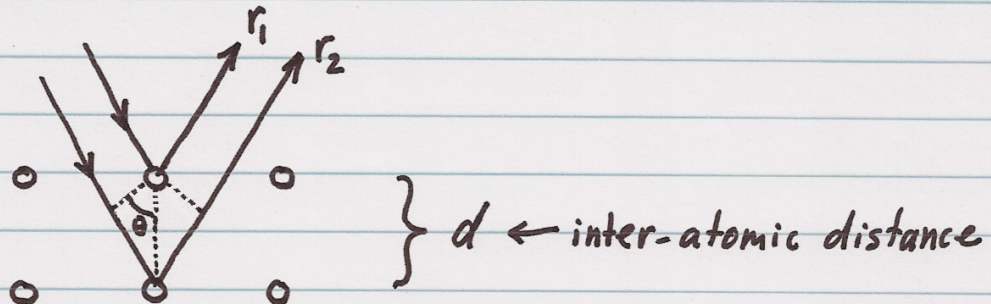 r₁
r₂
θ
d ← inter-atomic distance